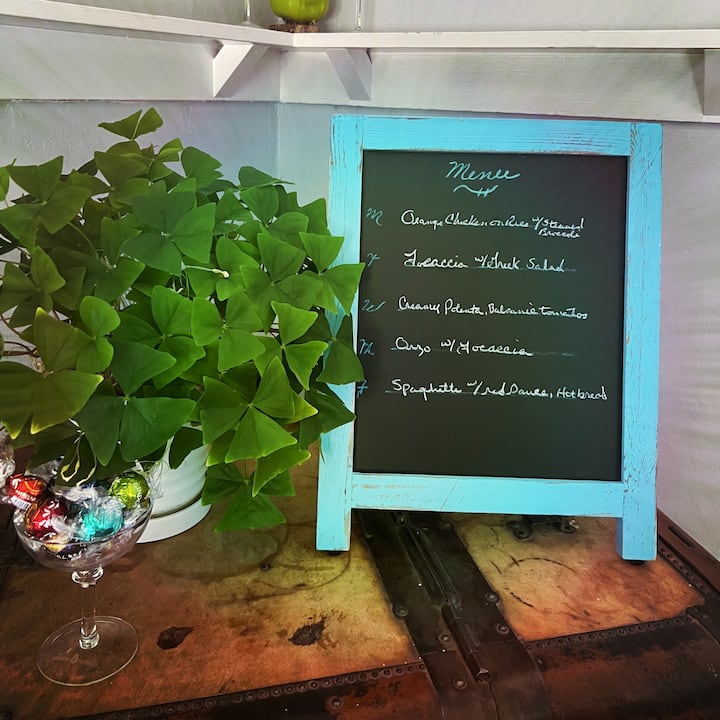 Menu
M Orange Chicken on Rice w/ Steamed
Broccoli
T Focaccia w/ Greek Salad
Wed Creamy Polenta, Balsamic tomatoes
Th Orzo w/ Focaccia
F Spaghetti w/ red Sauce, Hot bread